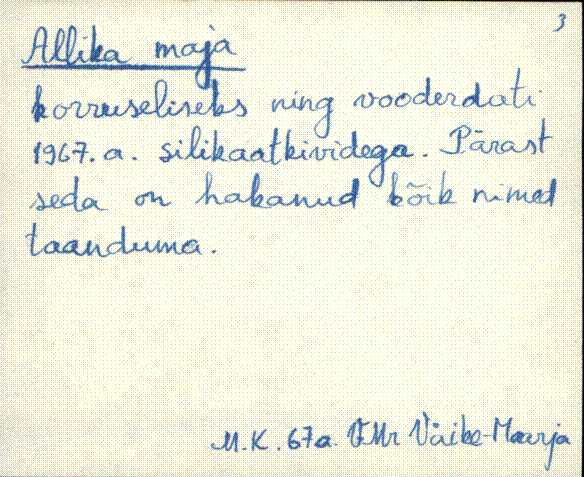 3
Allika maja
korruseliseks ning vooderdati
1967. a. silikaatkividega. Pärast
seda on hakanud kõik nimed
taanduma.
M.K. 67a. VMr Väike-Maarja